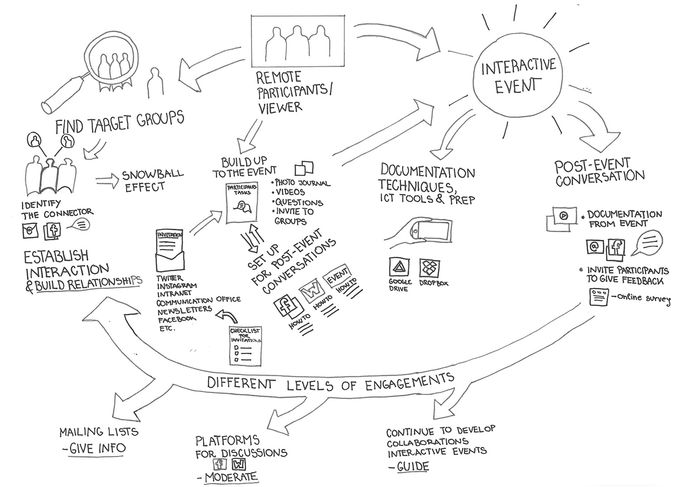 REMOTE
PARTICIPANTS/
VIEWER
INTERACTIVE
EVENT
FIND TARGET GROUPS
SNOWBALL
EFFECT
IDENTIFY
THE CONNECTOR
ESTABLISH
INTERACTION
& BUILD RELATIONSHIPS
BUILD UP
TO THE EVENT
PARTICIPANT
TASKS
• PHOTO JOURNAL
• VIDEOS
• QUESTIONS
• INVITE TO
GROUPS
INVITATION
TWITTER
INSTAGRAM
INTRANET
COMMUNICATION OFFICE
NEWSLETTERS
FACEBOOK
ETC.
CHECKLIST
FOR
INVITATIONS
SET UP
FOR POST-EVENT
CONVERSATIONS
f
W
EVENT
HOW TO
HOW TO
HOW TO
DOCUMENTATION
TECHNIQUES,
ICT TOOLS & PREP
GOOGLE
DRIVE
DROPBOX
POST-EVENT
CONVERSATION
• DOCUMENTATION
FROM EVENT
@ f
• INVITE PARTICIPANTS
TO GIVE FEEDBACK
- online survey
DIFFERENT LEVELS OF ENGAGEMENTS
MAILING LISTS
- GIVE INFO
PLATFORMS
FOR DISCUSSIONS
f W
- MODERATE
CONTINUE TO DEVELOP
COLLABORATIONS
INTERACTIVE EVENTS
- GUIDE